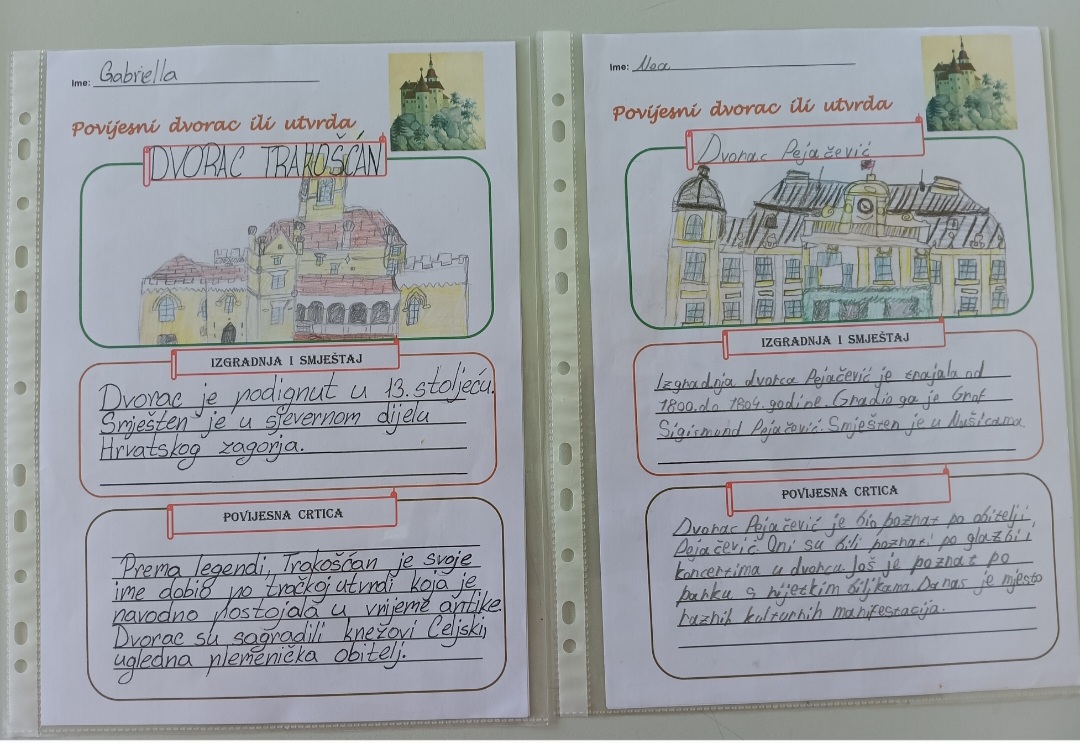 Ime: Gabriella
Povijesni dvorac ili utvrda
DVORAC TRAKOŠĆAN
IZGRADNJA I SMJEŠTAJ
Dvorac je podignut u 13. stoljeću.
Smješten je u sjevernom dijelu
Hrvatskog zagorja.
POVIJESNA CRTICA
Prema legendi, Trakošćan je svoje
ime dobio po tračkoj utvrdi koja je
navodno postojala u vrijeme antike.
Dvorac su sagradili knezovi Celjski,
ugledna plemenička obitelj.
Ime: Nea
Povijesni dvorac ili utvrda
Dvorac Pejačević
IZGRADNJA I SMJEŠTAJ
Izgradnja dvorca Pejačević je trajala od
1800. do 1804. godine. Gradio ga je Grof
Sigismund Pejačević. Smješten je u Našicama
POVIJESNA CRTICA
Dvorac Pejačević je bio poznat po obitelji
Pejačević. Oni su bili poznati po glazbi i
koncertima u dvorcu. Još je poznat po
parku s rijetkim biljkama. Danas je mjesto
raznih kulturnih manifestacija.